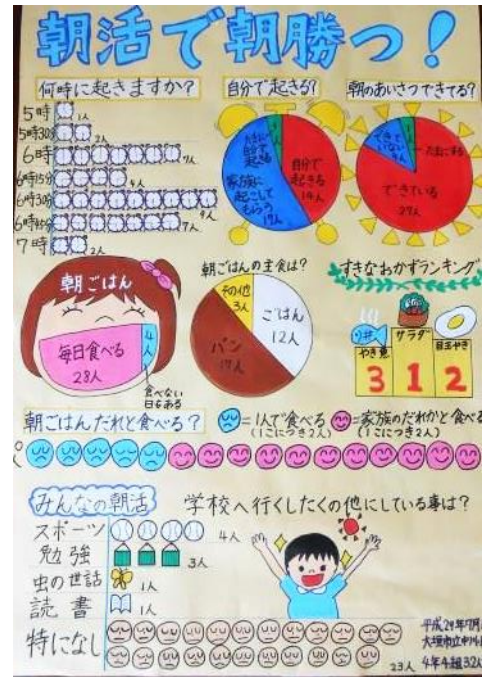 朝活で朝勝つ!
何時に起きますか?
5時 1人
5時30分 2人
6時 7人
6時15分 4人
6時30分 9人
6時45分 7人
7時 2人
自分で起きる?
自分で起きる 14人
家族に起こしてもらう 17人
たまに自分で起きる
朝のあいさつできてる?
できている 27人
できていない 4人
たまにする
朝ごはん
毎日食べる
28人
4人
食べない日もある
朝ごはんの主食は?
ごはん
12人
パン
17人
その他
3人
すきなおかずランキング
やき魚
3
サラダ
1
目玉やき
2
朝ごはんだれと食べる?
=1人で食べる
(1こにつき2人)
=家族のだれかと食べる
(1こにつき2人)
みんなの朝活
学校へ行くしたくの他にしている事は?
スポーツ 4人
勉強 3人
虫の世話 1人
読書 1人
特になし 23人
4年4組32人